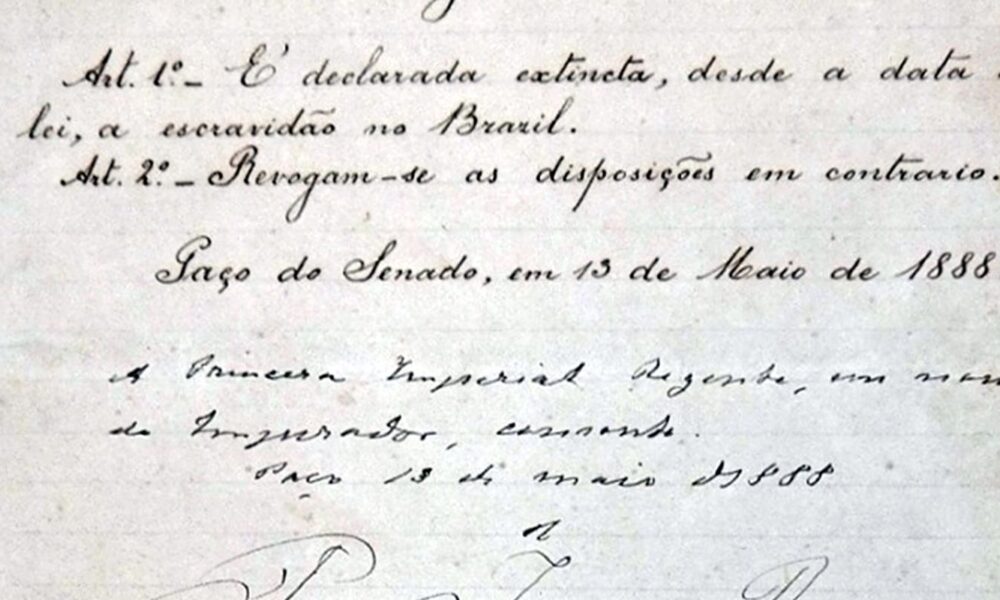 Art. 1.º - É declarada extincta, desde a data
lei, a escravidão no Brazil.
Art. 2.º - Revogam-se as disposições em contrario.
Paço do Senado, em 13 de Maio de 1888
A Princeza Imperial Regente, em nom
do Imperador, consente.
Paço 13 de maio de 1888